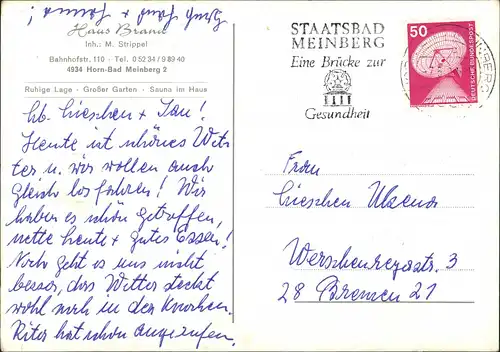 Haus Brand
Inh.: M. Strippel
Bahnhofstr. 110 · Tel. 0 52 34 / 9 89 40
4934 Horn-Bad Meinberg 2
Ruhige Lage · Großer Garten · Sauna im Haus
lb. Lieschen + Jan!
Heute ist schönes Wet-
ter, u. wir wollen auch
gleich losfahren! Wir
haben es schön getroffen,
nette Leute + gutes Essen!
Noch geht es uns nicht
besser, das Wetter steckt
wohl noch in den Knochen.
hat schon angerufen.
STAATSBAD
MEINBERG
Eine Brücke zur
Gesundheit
50
DEUTSCHE BUNDESPOST
Frau
Lieschen
3
28 Bremen 21